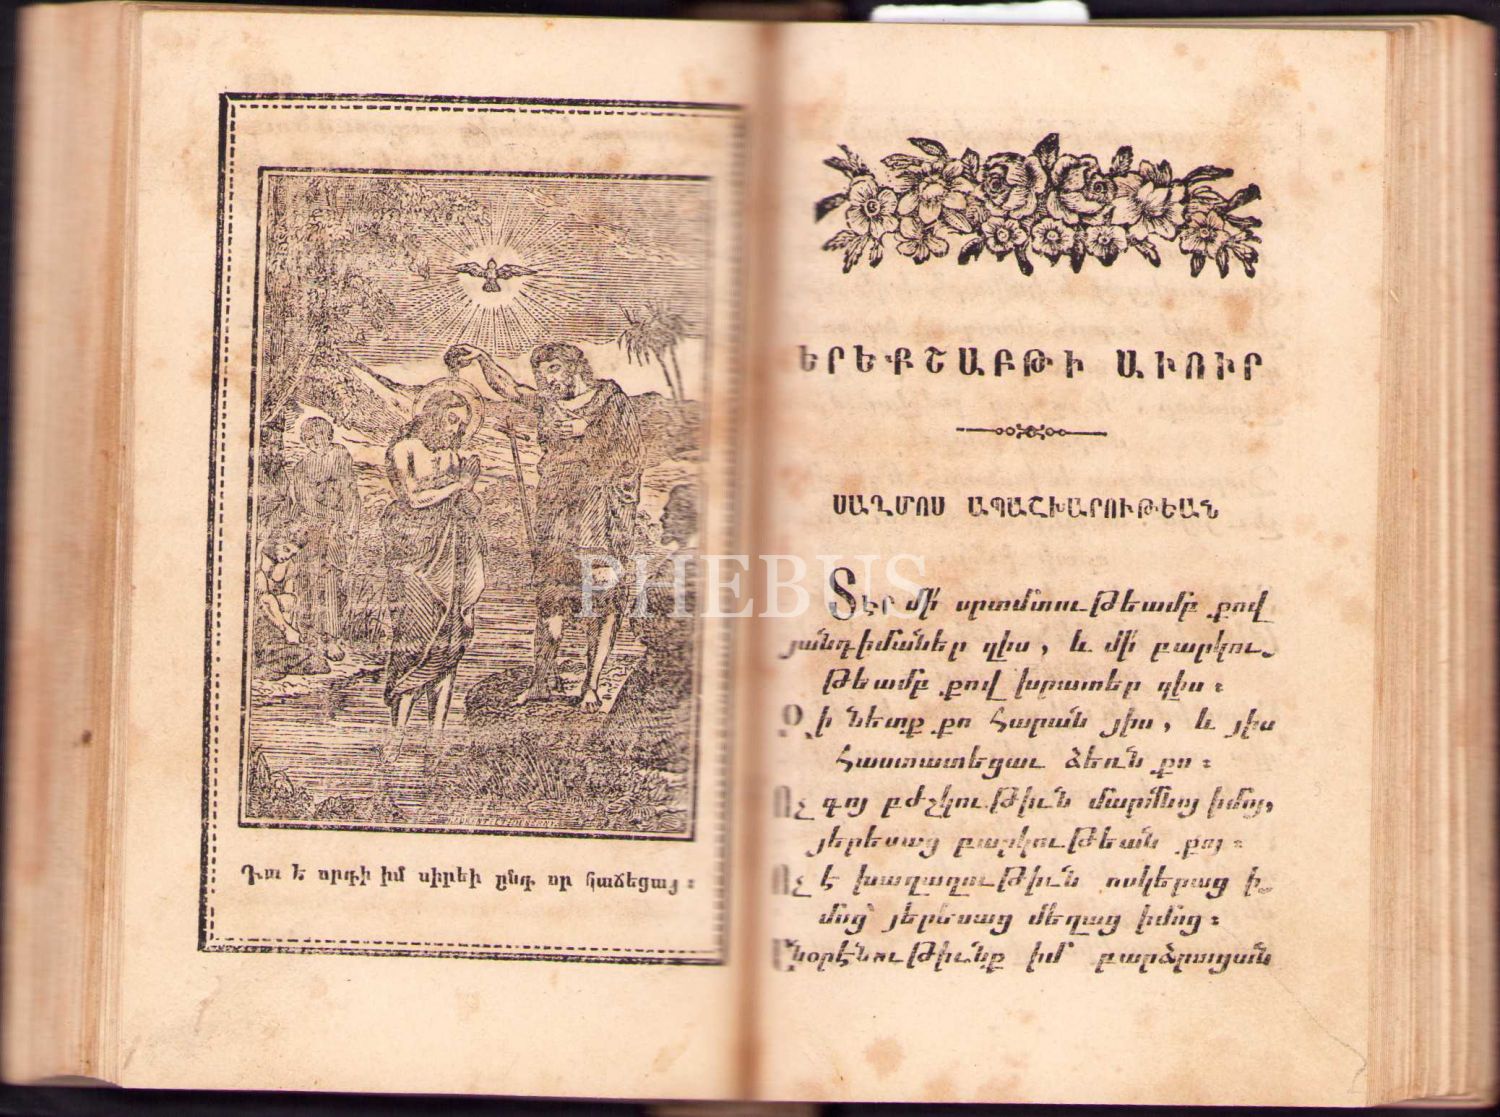 Դա է որդի իմ սիրելի ընդ որ հաճեցայ ։
ԵՐԵՔՇԱԲԹԻ ԱՒՈՒՐ
ՍԱՂՄՈՍ ԱՊԱՇԽԱՐՈՒԹԵԱՆ
Տէր մի՛ սրտմտութեամբ քով
յանդիմաներ զիս , և մի՛ բարկու֊
թեամբ քով խրատեր զիս ։
Զի նետք քո հարան յիս , և յիս
հաստատեցաւ ձեռն քո ։
Ոչ գոյ բժշկութիւն մարմնոյ իմոյ,
յերեսաց բարկութեան քոյ ։
Ոչ է խաղաղութիւն ոսկերաց ի֊
մոց՝ յերեսաց մեղաց իմոց ։
Անօրէնութիւնք իմ՝ բարձրացան
PHEBUS